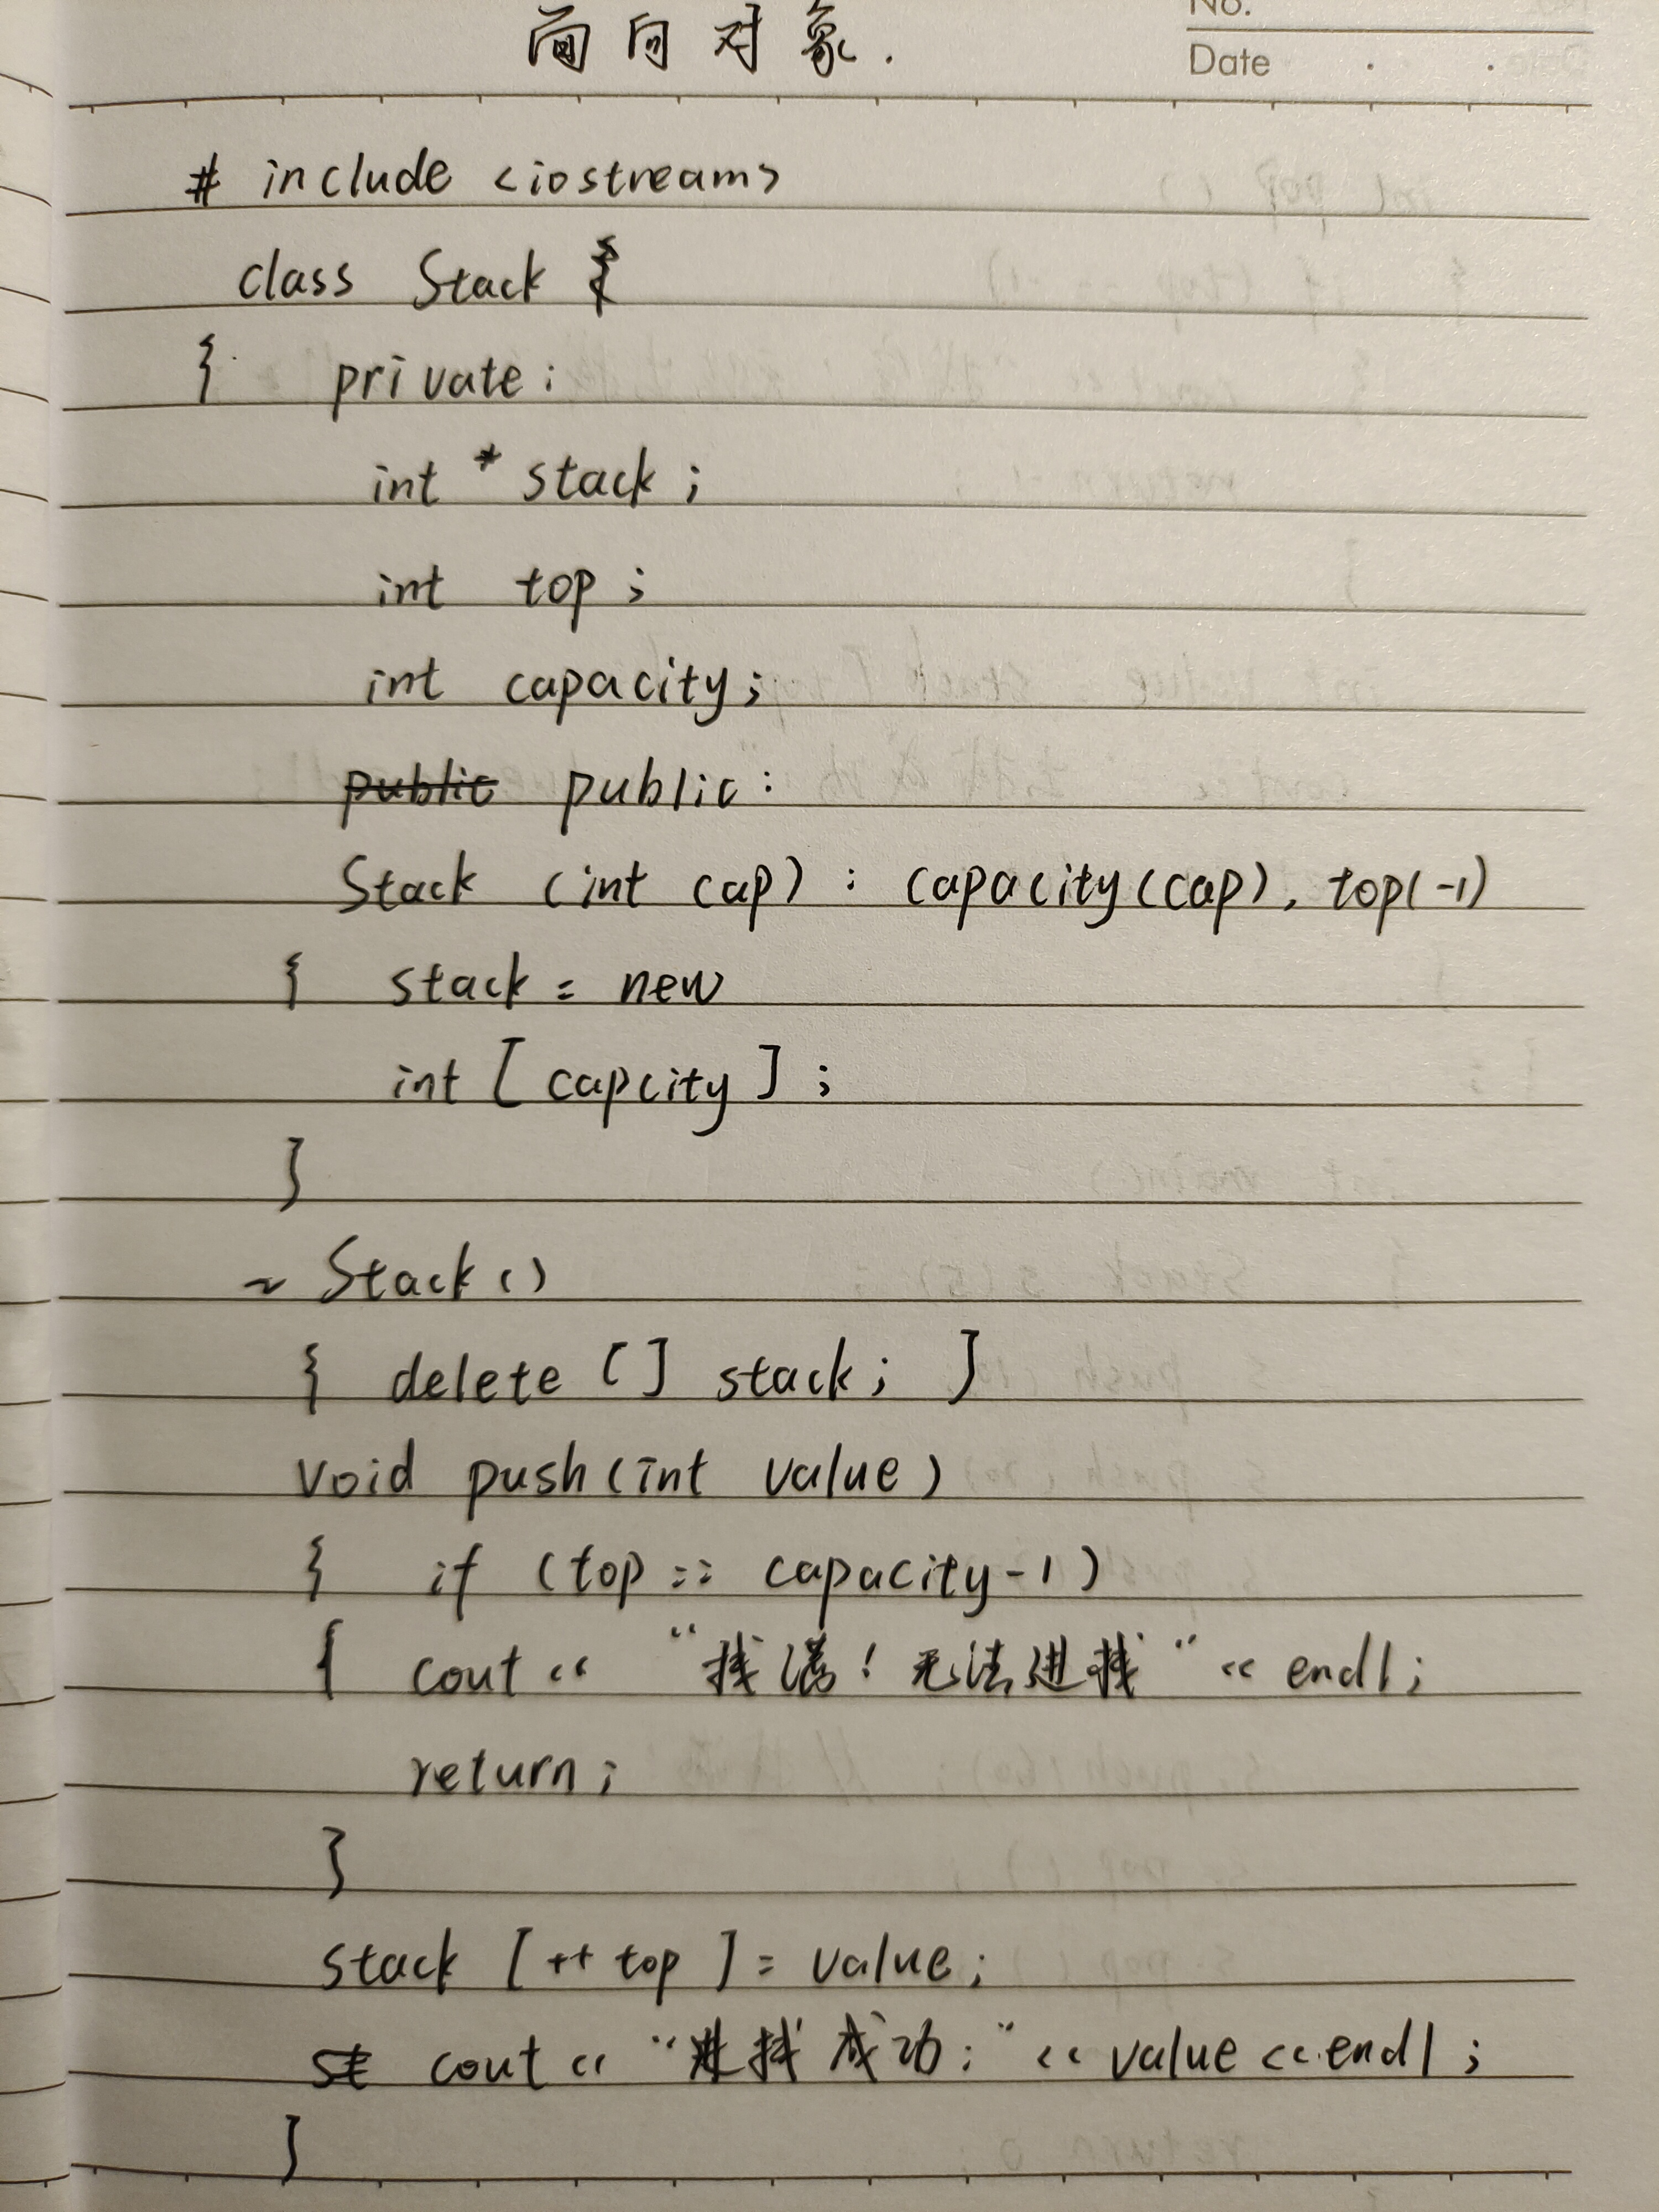 面向对象.
No.
Date
# include <iostream>
class Stack {
{ private:
int * stack;
int top;
int capacity;
public public:
Stack (int cap) : capacity(cap), top(-1)
{ stack = new
int [ capcity ] ;
}
~ Stack ()
{ delete [] stack; }
void push(int value)
{ if (top == capacity-1)
{ cout << "栈满! 无法进栈" << endl;
return;
}
stack [ ++ top ] = value;
st cout << "进栈成功:" << value << endl;
}